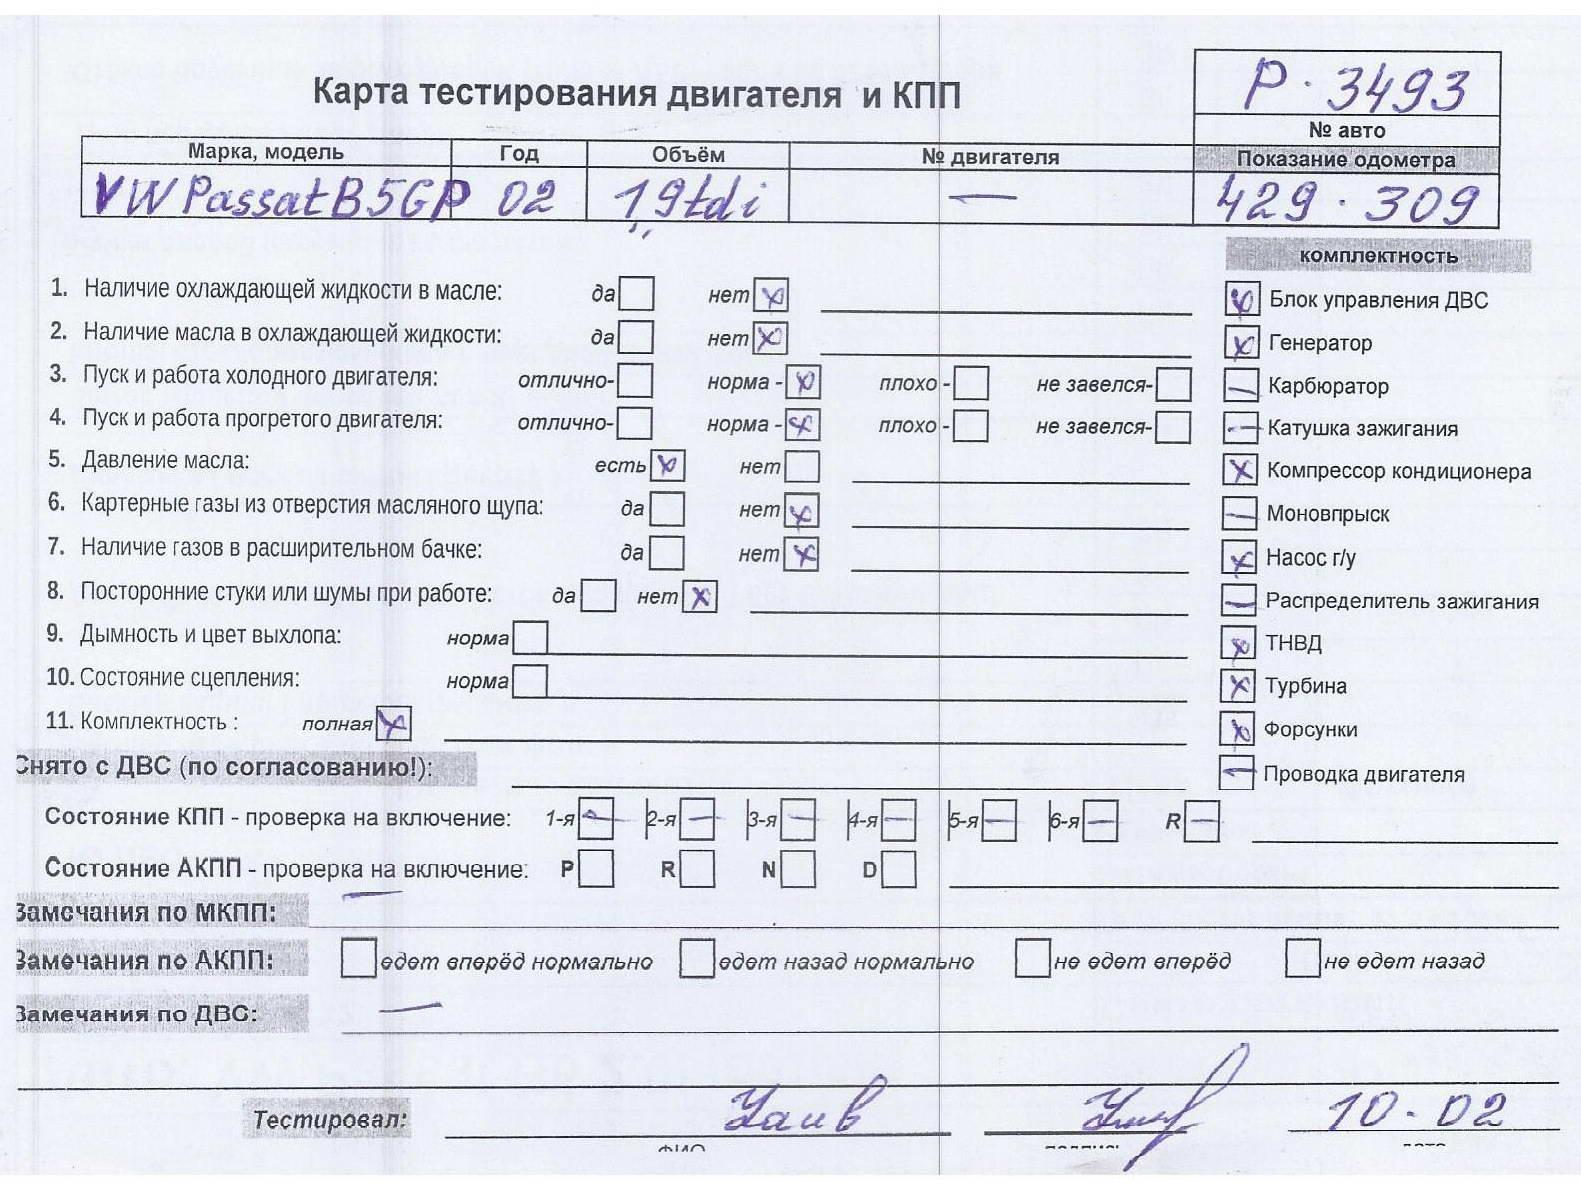 Карта тестирования двигателя и КПП
P·3493
№ авто
Марка, модель Год Объём № двигателя Показание одометра
VW Passat B5GP 02 1,9tdi — 429·309
комплектность
1. Наличие охлаждающей жидкости в масле: да нет x
2. Наличие масла в охлаждающей жидкости: да нет x
3. Пуск и работа холодного двигателя: отлично- норма - x плохо - не завелся-
4. Пуск и работа прогретого двигателя: отлично- норма - x плохо - не завелся-
5. Давление масла: есть x нет
6. Картерные газы из отверстия масляного щупа: да нет x
7. Наличие газов в расширительном бачке: да нет x
8. Посторонние стуки или шумы при работе: да нет x
9. Дымность и цвет выхлопа: норма
10. Состояние сцепления: норма
11. Комплектность : полная x
x Блок управления ДВС
x Генератор
— Карбюратор
— Катушка зажигания
x Компрессор кондиционера
— Моновпрыск
x Насос г/у
— Распределитель зажигания
x ТНВД
x Турбина
x Форсунки
— Проводка двигателя
Снято с ДВС (по согласованию!):
Состояние КПП - проверка на включение: 1-я — 2-я — 3-я — 4-я — 5-я — 6-я — R —
Состояние АКПП - проверка на включение: P R N D
Замечания по МКПП: —
Замечания по АКПП: едет вперёд нормально едет назад нормально не едет вперёд не едет назад
Замечания по ДВС: —
Тестировал: 10-02
ФИО подпись дата